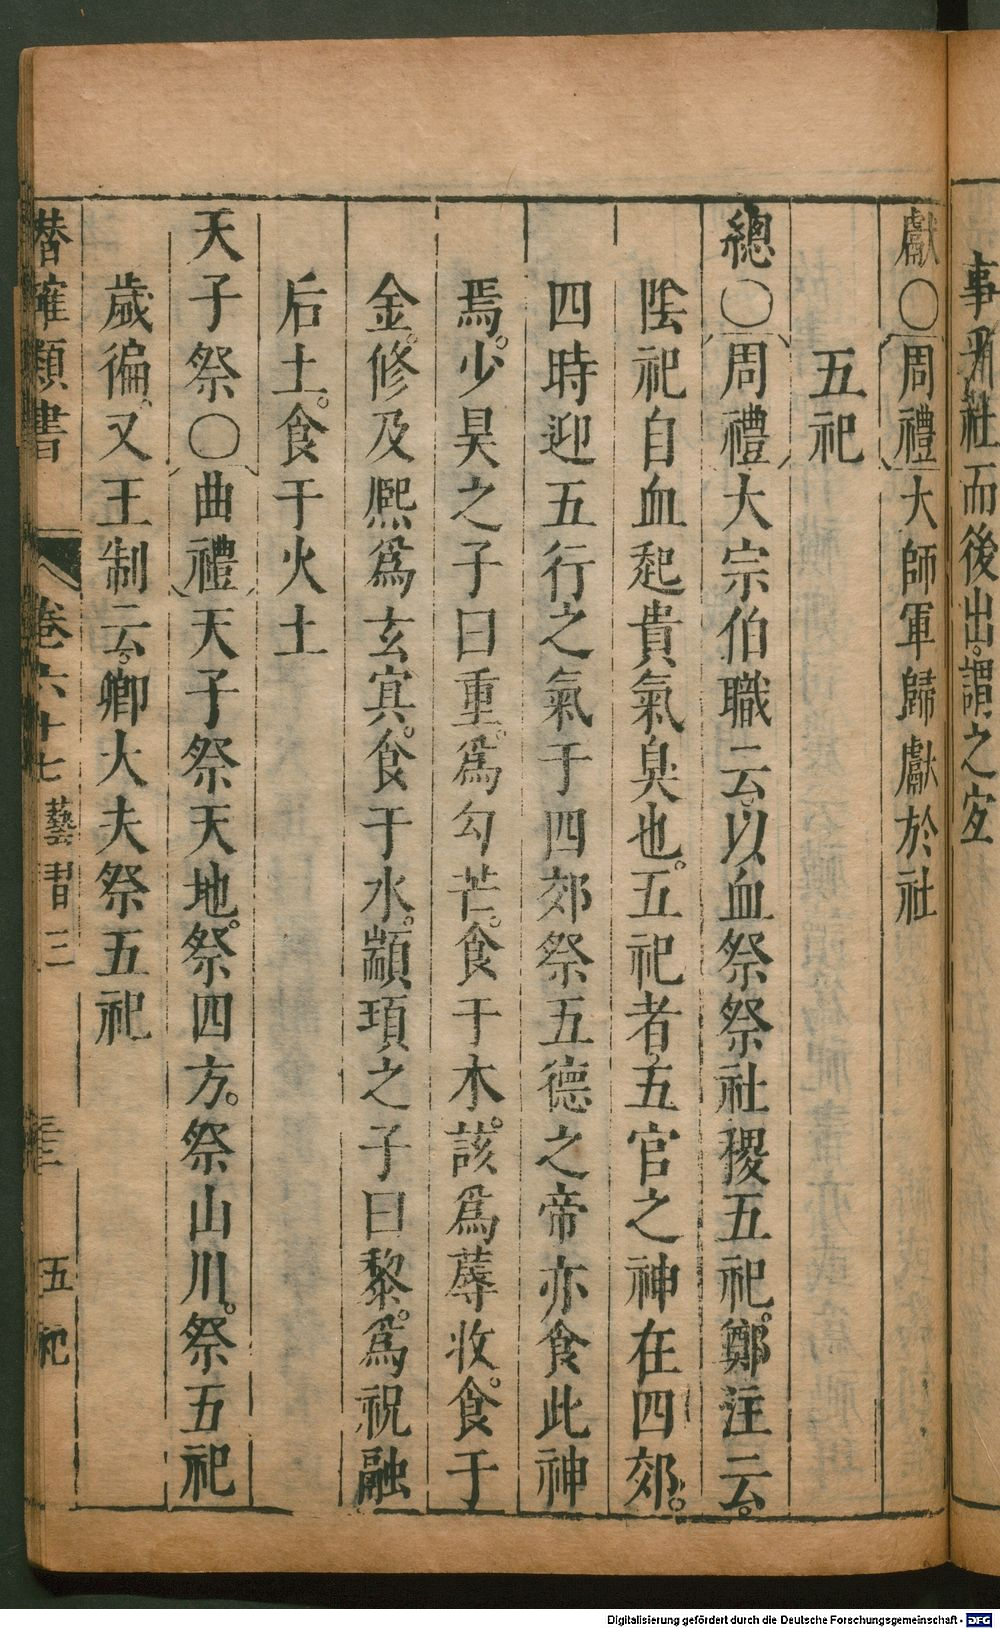 事于社而後出。謂之宜
獻〇周禮大師軍歸獻於社
五祀
總〇周禮大宗伯職云。以血祭祭社稷五祀。鄭注云。
陰祀自血起貴氣臭也。五祀者。五官之神在四郊。
四時迎五行之氣于四郊祭五德之帝亦食此神
焉。少昊之子曰重。爲勾芒。食于木。該爲蓐收。食于
金。修及熈爲玄冥。食于水。顓頊之子曰黎。爲祝融
后土。食于火土
天子祭〇曲禮天子祭天地。祭四方。祭山川。祭五祀
歲徧。又王制云。卿大夫祭五祀
類書
卷六十七 藝習三
五祀
Digitalisierung gefördert durch die Deutsche Forschungsgemeinschaft - DFG